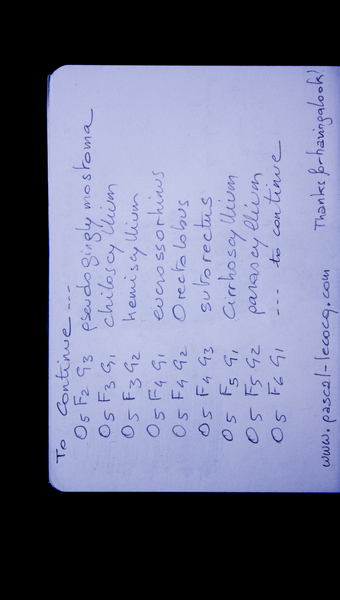 To Continue ---
O5 F2 G3 pseudogingly mostoma
O5 F3 G1 chiloscyllium
O5 F3 G2 hemiscyllium
O5 F4 G1 eucrossorhinus
O5 F4 G2 Orectolobus
O5 F4 G3 sutorectus
O5 F5 G1 Cirrhoscyllium
O5 F5 G2 parascyllium
O5 F6 G1 --- to continue
www.pascal-lecocq.com Thanks for havingalook!